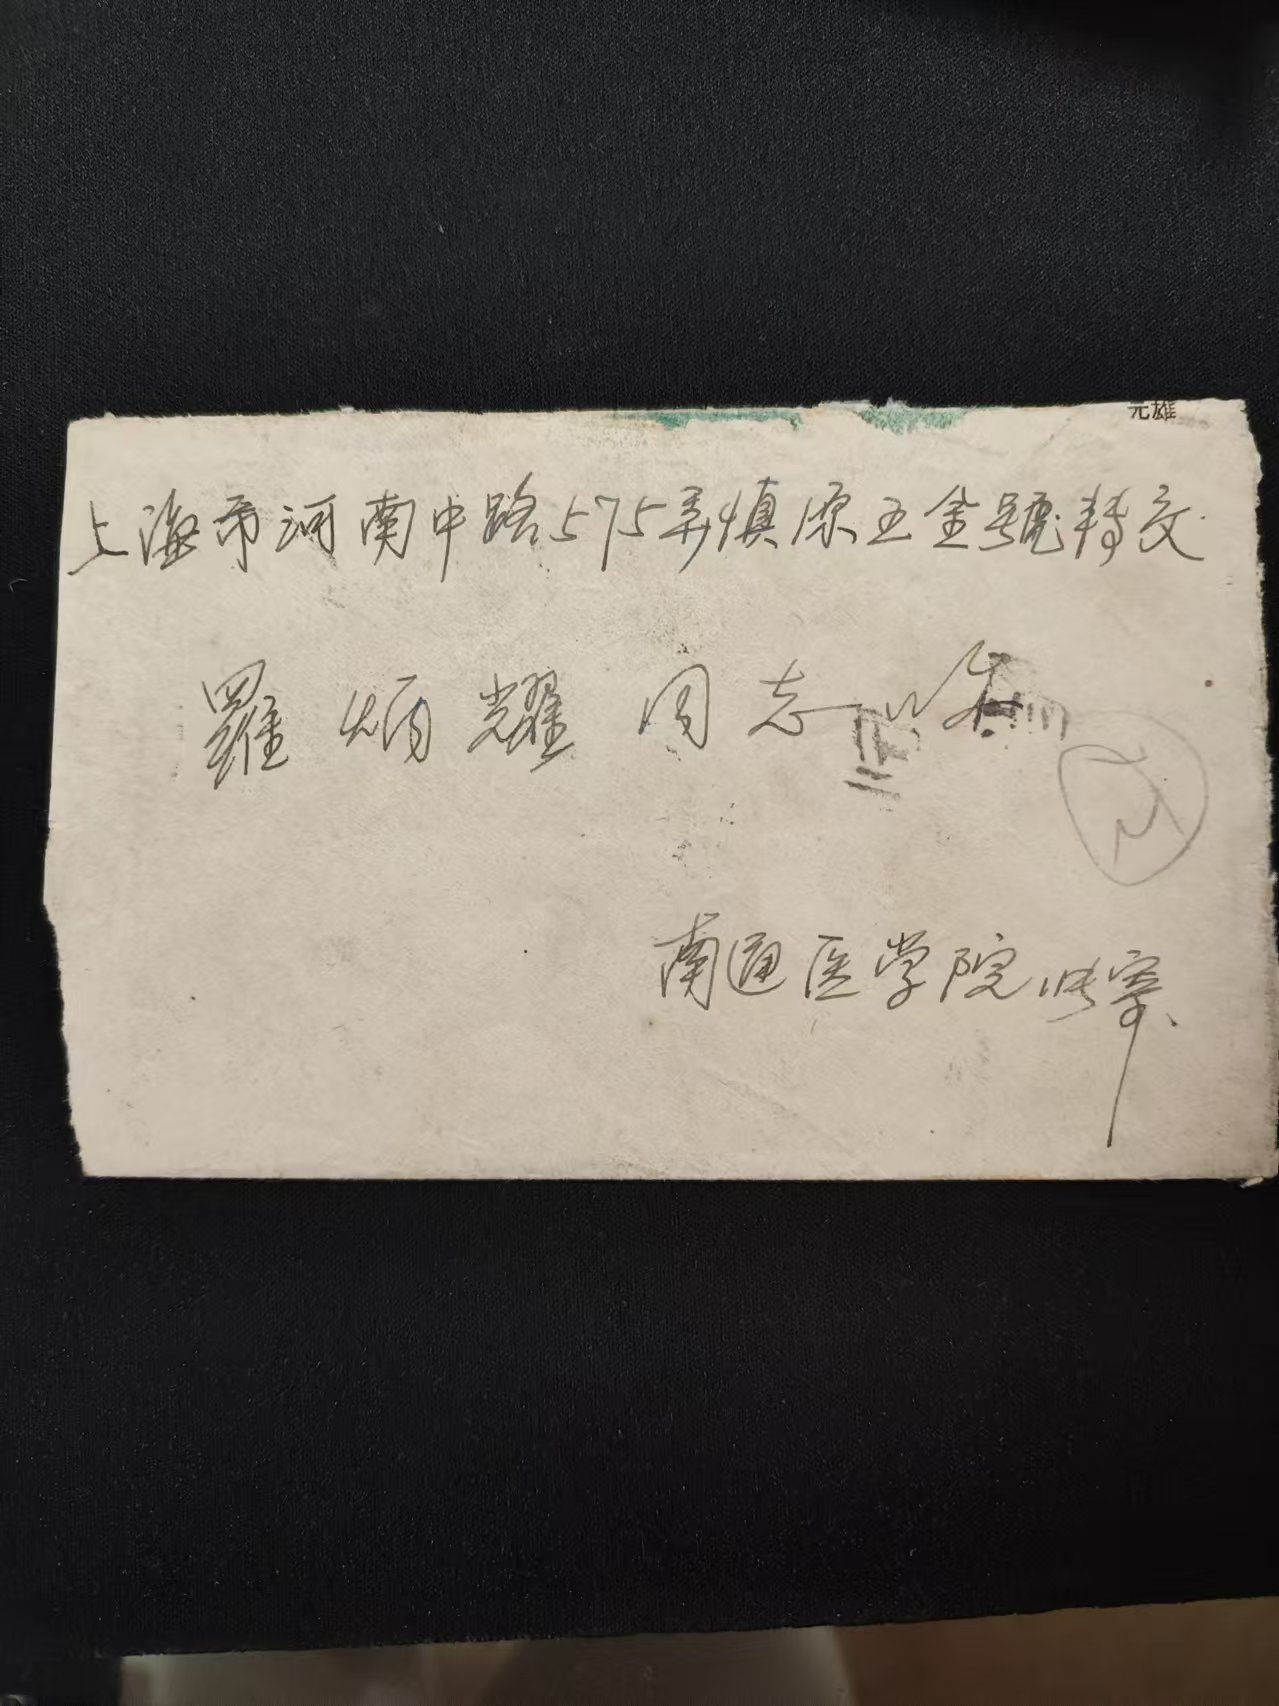 元雄
上海市河南中路575弄慎源五金號轉交
羅炳耀同志收
南通医学院 寄